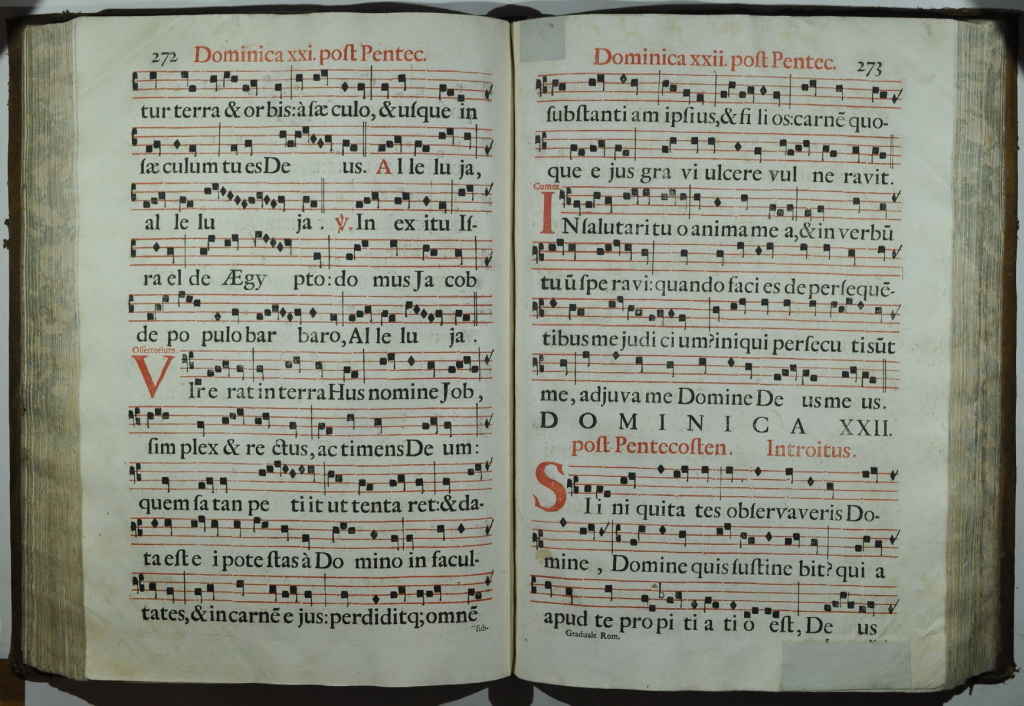 272 Dominica xxi. poſt Pentec.
tur terra & or bis: à ſæ culo, & uſque in
ſæ culum tu es De us. A l le lu ja,
al le lu ja . ℣. In ex itu Iſ-
ra el de Ægy pto: do mus Ja cob
de po pulo bar baro, Al le lu ja .
Offertorium.
VIr e rat in terra Hus nomine Job ,
ſim plex & re ctus, ac timens De um:
quem ſa tan pe ti it ut tenta ret: & da-
ta eſt e i pote ſtas à Do mino in facul-
tates, & in carnē e jus: perdiditq; omnē
ſub-
Dominica xxii. poſt Pentec. 273
ſubſtanti am ipſius, & fi li os: carnē quo-
que e jus gra vi ulcere vul ne ravit.
Comm.
IN ſalutari tu o anima me a, & in verbū
tu ū ſpe ravi: quando faci es de perſequē-
tibus me judi ci um? iniqui perſecu ti sūt
me, adjuva me Domine De us me us.
DOMINICA XXII.
poſt Pentecoſten. Introitus.
SI i ni quita tes obſervaveris Do-
mine , Domine quis ſuſtine bit? qui a
apud te pro pi ti a ti o eſt, De us
Graduale Rom.